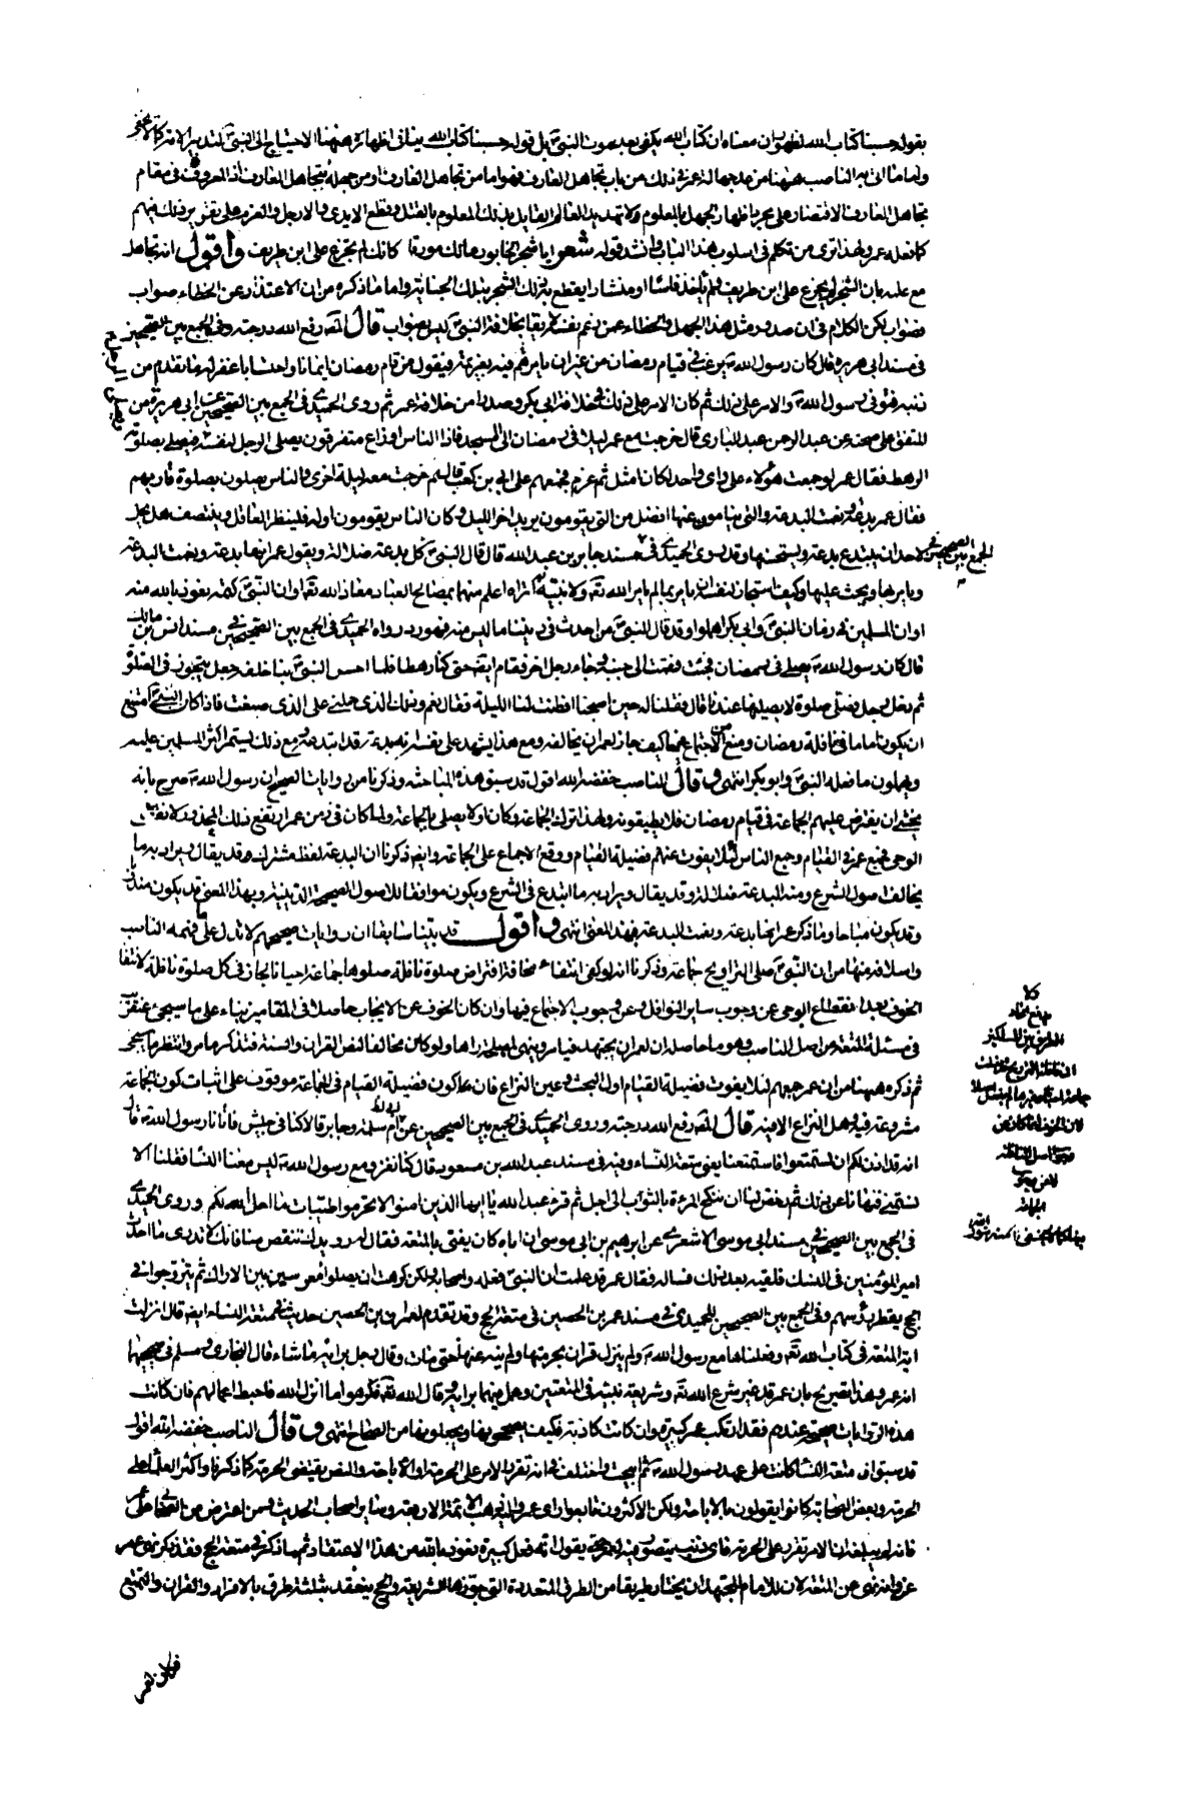 بقوله حسبنا كتاب الله لظهور ان معناه ان كتاب الله يكفي بعد موت النبي ص بل قوله حسبنا كتاب الله ينافي اظهاره ههنا الاحتياج الى النبي ص
واما ما اتى به الناصب ههنا من عد جهالة عمر في ذلك من باب تجاهل العارف فهو اما من تجاهل العارف او من جهله بتجاهل العارف اذ المعروف في مقام
تجاهل العارف الاقتصار على مجرد اظهار الجهل بالمعلوم ولا تهديد العالم القايل بذلك المعلوم بالقتل وقطع الايدي والارجل والعزم على تقرير ذلك فيهم
كما فعله عمر ولهذا ترى من تكلم في اسلوب هذا الباب وانشد قوله شعر ايا شجر الخابور مالك مورقا كانك لم تجزع على ابن طريف واقول انه تجاهل
مع علمه بان الشجر لم يجزع على ابن طريف فلم ياخذ فاسا او منشارا يقطع بذلك الشجر بتلك الجناية واما ما ذكره من ان الاعتذار عن الخطاء صواب
فصواب لكن الكلام في ان صدور مثل هذا الجهل والخطاء عن زعم نفسه لايقا بخلافة النبي ص ليس بصواب قال المص رفع الله درجته وفي الجمع بين الصحيحين
في مسند ابي هريرة قال كان رسول الله ص يرغب في قيام رمضان من غير ان يامرهم فيه بعزيمة فيقول من قام رمضان ايمانا واحتسابا غفر له ما تقدم من
ذنبه فتوفي رسول الله ص والامر على ذلك ثم كان الامر على ذلك في خلافة ابي بكر وصدرا من خلافة عمر ثم روى الحميدي في الجمع بين الصحيحين عن ابي هريرة من
المتفق على صحته عن عبد الرحمن عبد الباري قال خرجت مع عمر ليلة في رمضان الى المسجد فاذا الناس اوزاع متفرقون يصلي الرجل لنفسه فيصلي بصلوته
الرهط فقال عمر لو جمعت هؤلاء على واحد لكان امثل ثم عزم فجمعهم على ابي بن كعب قال ثم خرجت معه ليلة اخرى والناس يصلون بصلوة قاريهم
فقال عمر بدعة ونعمت البدعة والتي ينامون عنها افضل من التي يقومون يريد اخر الليل وكان الناس يقومون اوله فلينظر العاقل وينصف هل يحل
لاحد ان يبتدع بدعة ويستحسنها وقد روى الحميدي في مسند جابر بن عبد الله قال قال النبي ص كل بدعة ضلالة ويقول عمر انها بدعة ونعمت البدعة
الجمع بين الصحيحين في
ويامر بها ويحث عليها وكيف استجاز لنفسه ان يامر بما لم يامر الله تع ولا نبيه ص اتراه اعلم منهما بمصالح العباد معاذ الله تع او ان النبي ص كتمه نعوذ بالله منه
او ان المسلمين في زمان النبي ص وابي بكر اهملوا وقد قال النبي ص من احدث في ديننا ما ليس منه فهو رد رواه الحميدي في الجمع بين الصحيحين في مسند انس بن مالك
قال كان رسول الله ص يصلي في رمضان فجئت فقمت الى جنبه وجاء رجل اخر فقام ايضا حتى كنا رهطا فلما احس النبي ص بنا خلفه جعل يتجوز في الصلوة
ثم دخل رحله فصلى صلوة لا يصليها عندنا قال فقلنا له حين اصبحنا افطنت لنا الليلة فقال نعم وذلك الذي حملني على الذي صنعت فاذا كان النبي ص امتنع
ان يكون اماما في نافلة رمضان ومنع من الاجتماع فيها كيف جاز لعمر ان يخالفه ومع هذا يشهد على نفسه انه بدعة قد ابتدعه ومع ذلك يستمر اكثر المسلمين عليه
ويهملون ما فعله النبي ص وابو بكر انتهى وقال الناصب خفضه الله اقول قد سبق هذه المباحثة وذكرنا من روايات الصحيح ان رسول الله ص صرح بانه
يخشى ان يفترض عليهم الجماعة في قيام رمضان فلا يطيقونه ولهذا ترك الجماعة وكان اولا يصلي بالجماعة ولما كان في زمن عمر ارتفع ذلك المحذور لانقطاع
الوحي فجمع عمر في القيام وجمع الناس لئلا يفوت عنهم فضيلة القيام ووقع الاجماع على الجماعة وايضا ذكرنا ان البدعة لفظ مشترك وقد يقال ويراد به ما
يخالف اصول الشرع ومنه البدعة ضلالة وقد يقال ويراد به ما ابتدع في الشرع ويكون موافقا للاصول الصحيحة الدينية وبهذا المعنى قد يكون مندوبا
وقد يكون مباحا وما ذكر عمر انها بدعة ونعمت البدعة بهذا المعنى انتهى واقول قد بينا سابقا ان روايات صحيحهم لا تدل على ما فهمه الناصب
واسلافه منها من ان النبي ص صلى التراويح جماعة وذكرنا انه لو كفى انتفاء مخافة افتراض صلوة نافلة صلوها جماعة احيانا لجاز في كل صلوة نافلة لانتفا
الخوف بعد انقطاع الوحي عن وجوب ساير النوافل وعن وجوب الاجتماع فيها وان كان الخوف عن الايجاب حاصلا في المقامين بناء على ما سيجيء عنقريب
في مسئلة المتعة من اصل الناصب وهو ما حاصله ان لعمر ان يجتهد فيامر وينهى لمصلحة راها ولو كان مخالفا لنص القران والسنة فتذكر ما مر وانتظر ما سيجيء
ثم ذكره ههنا من ان عمر جمعهم لئلا يفوت فضيلة القيام اول البحث وعين النزاع فان كون فضيلة القيام في الجماعة موقوف على اثبات كون الجماعة
مشروعة فيه وهل النزاع الا فيه قال المص رفع الله درجته وروى الحميدي في الجمع بين الصحيحين عن سلمة وجابر قالا كنا في جيش فاتانا رسول الله ص قال
انه قد اذن لكم ان تستمتعوا فاستمتعنا يعني متعة النساء وفيه في مسند عبد الله بن مسعود قال كنا نغزو مع رسول الله ص ليس معنا النسا فقلنا الا
نستخصي فنهانا عن ذلك ثم رخص لنا ان ننكح المرءة بالثوب الى اجل ثم قرء عبد الله يا ايها الذين امنوا لا تحرموا طيبات ما احل الله لكم وروى الحميدي
في الجمع بين الصحيحين في مسند ابي موسى الاشعري عن ابرهيم بن ابي موسى ان اباه كان يفتي بالمتعة فقال له رويدك لتنقص فانك لا تدري ما احدث
امير المؤمنين في النسك فلقيه بعد ذلك فساله فقال عمر قد علمت ان النبي ص فعله واصحابه ولكن كرهت ان يصلوا معرسين بهن في الاراك ثم يتروحوا في
الحج يقطر رؤسهم وفي الجمع بين الصحيحين للحميدي في مسند عمر بن الحصين في متعة الحج وقد تقدم لعمران بن الحصين حديث في متعة النساء ايضا قال انزلت
اية المتعة في كتاب الله تع وفعلناها مع رسول الله ص ولم ينزل قران بحرمتها ولم ينه عنها حتى مات وقال رجل برايه ما شاء قال البخاري ومسلم في صحيحيهما
انه عمر وهذا تصريح بان عمر قد غير شرع الله تع وشريعة نبيه في المتعتين وعمل فيهما برايه وقال الله تع كرهوا ما انزل الله فاحبط اعمالهم فان كانت
هذه الروايات صحيحة عندهم فقد ارتكب عمر كبيرة وان كانت كاذبة فكيف يصححونها ويجعلونها من الصحاح انتهى وقال الناصب خفضه الله اقول
قد سبق ان متعة النسا كانت على عهد رسول الله ص ثم ابيحت واختلف في انه تقرر الامر على الحرمة او الاباحة والنص يقتضي الحرمة كما ذكرنا واكثر العلما على
الحرمة وبعض الصحابة كانوا يقولون بالاباحة ولكن الاكثرون تابعوا راي عمر واليه ذهب الائمة الاربعة وساير اصحاب الحديث فمن اعترض من الصحابة على عمر
فانه لم يبلغه ان الامر تقرر على الحرمة فاي ذنب يتصور فيه لعمر حتى يقول انه فعل كبيرة نعوذ بالله من هذا الاعتقاد ثم ما ذكر في متعة الحج فقد ذكرنا عن عمر
عزو انه نهى عن المتعة لان للامام المجتهد ان يختار طريقا من الطرق المتعددة التي جوزها الشريعة والحج ينعقد بثلثة طرق بالافراد والقران والتمتع